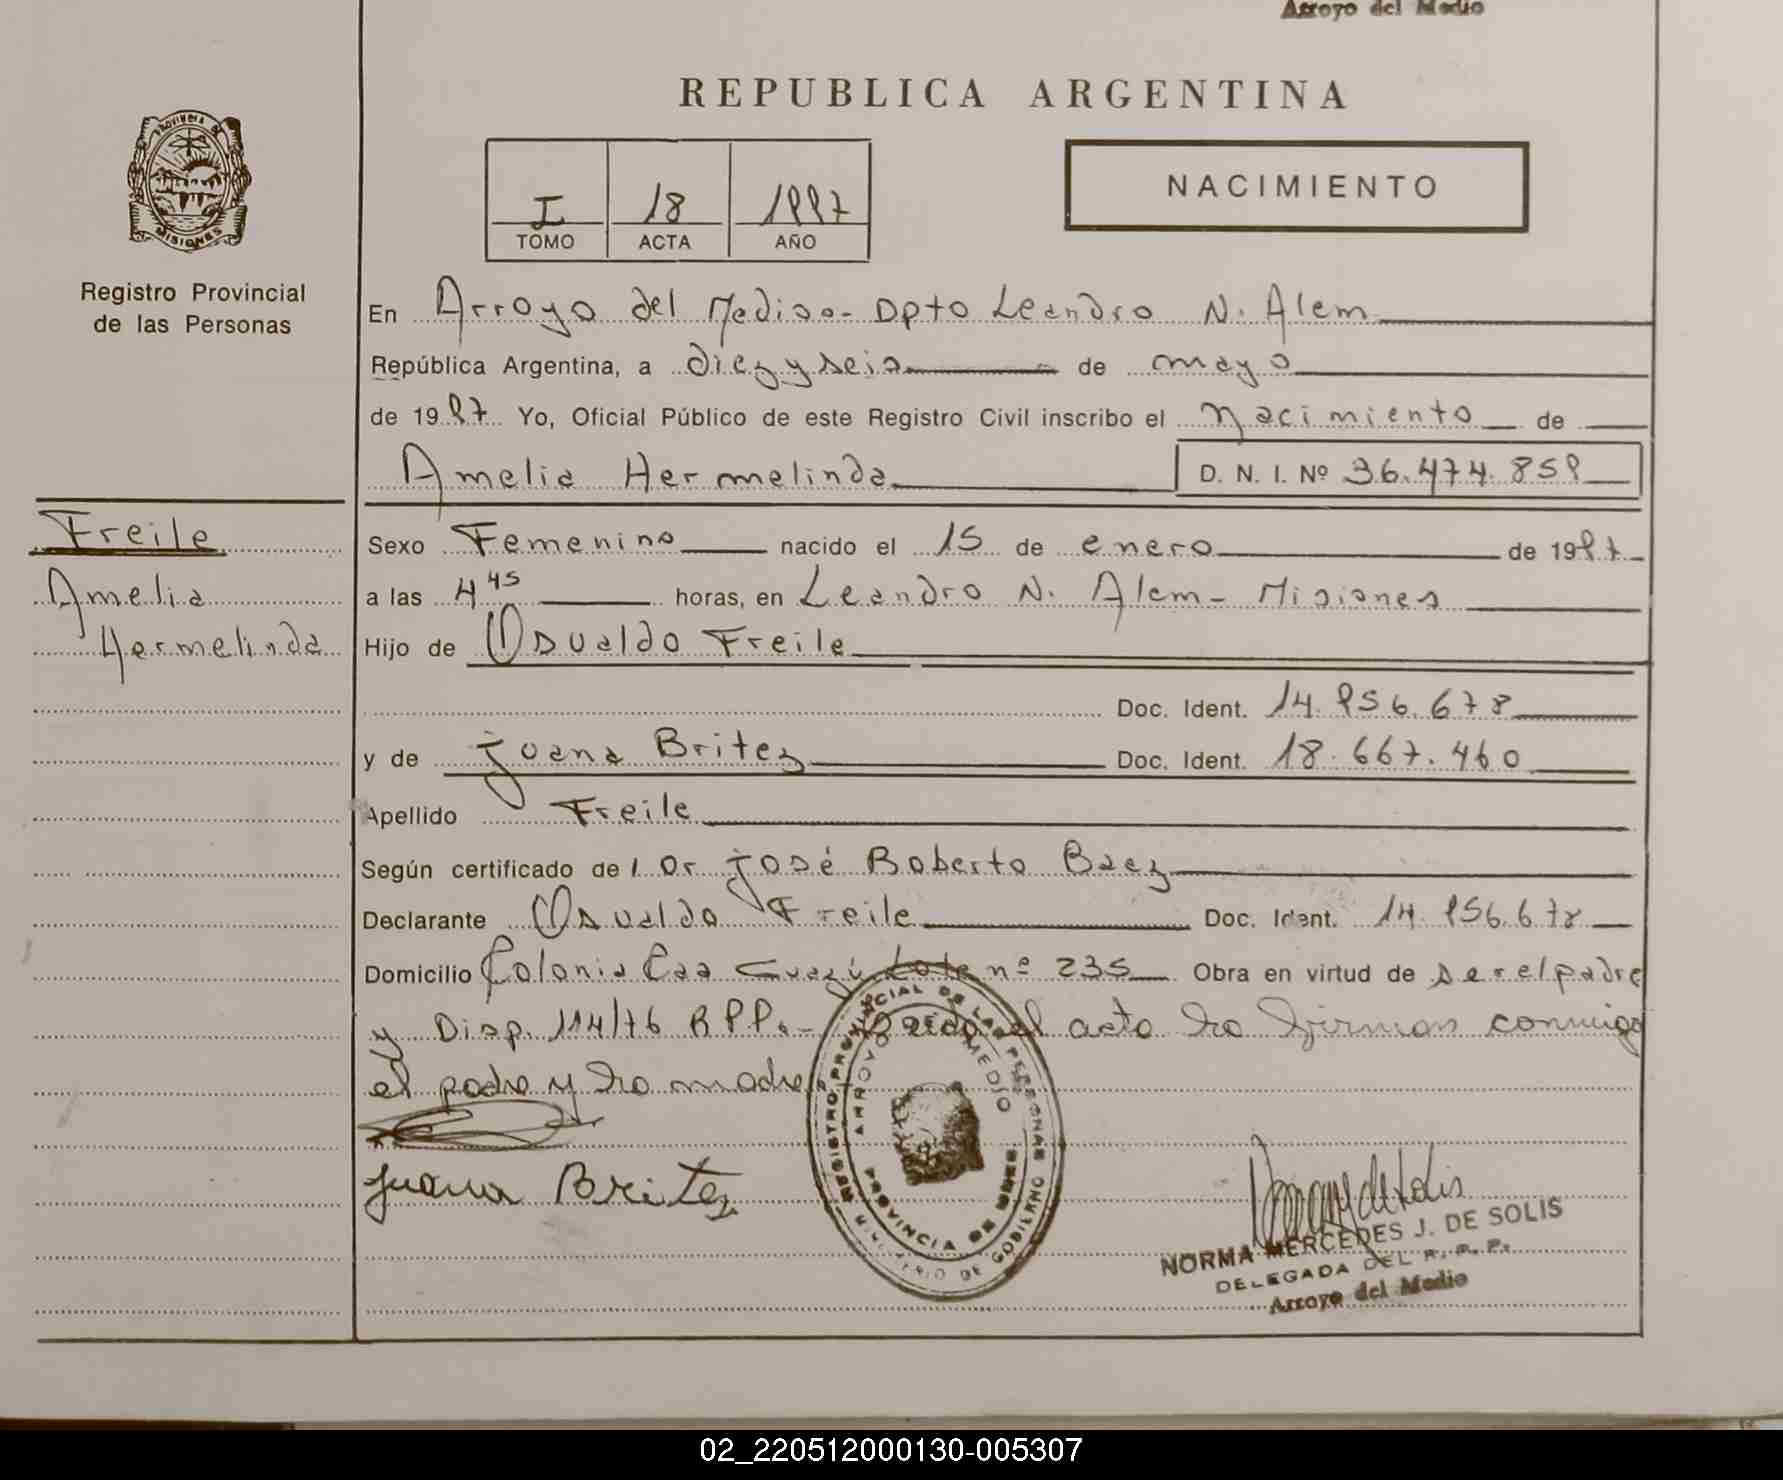 Arroyo del Medio
REPUBLICA ARGENTINA
PROVINCIA DE
MISIONES
Registro Provincial
de las Personas
I 18 1987
TOMO ACTA AÑO
NACIMIENTO
En Arroyo del Medio- Dpto Leandro N. Alem
República Argentina, a diez y seis de mayo
de 1987 Yo, Oficial Público de este Registro Civil inscribo el Nacimiento de
Amelia Hermelinda D. N. I. Nº 36.474.858
Freile
Amelia
Hermelinda
Sexo Femenino nacido el 15 de enero de 1987
a las 4 45 horas, en Leandro N. Alem- Misiones
Hijo de Osvaldo Freile
Doc. Ident. 14.856.678
y de Juana Britez Doc. Ident. 18.667.460
Apellido Freile
Según certificado de l Dr José Roberto Baez
Declarante Osvaldo Freile Doc. Ident. 14.856.678
Domicilio Colonia Caa Guazú Lote nº 235 Obra en virtud de ser el padre
y Disp. 114/76 RPP.- Leida el acta la firman conmigo
el padre y la madre.
Juana Britez
REGISTRO PROVINCIAL DE LAS PERSONAS
MINISTERIO DE GOBIERNO
ARROYO DEL MEDIO
PROVINCIA DE MNES.
NORMA MERCEDES J. DE SOLIS
DELEGADA DEL R. P. P.
Arroyo del Medio
02_220512000130-005307